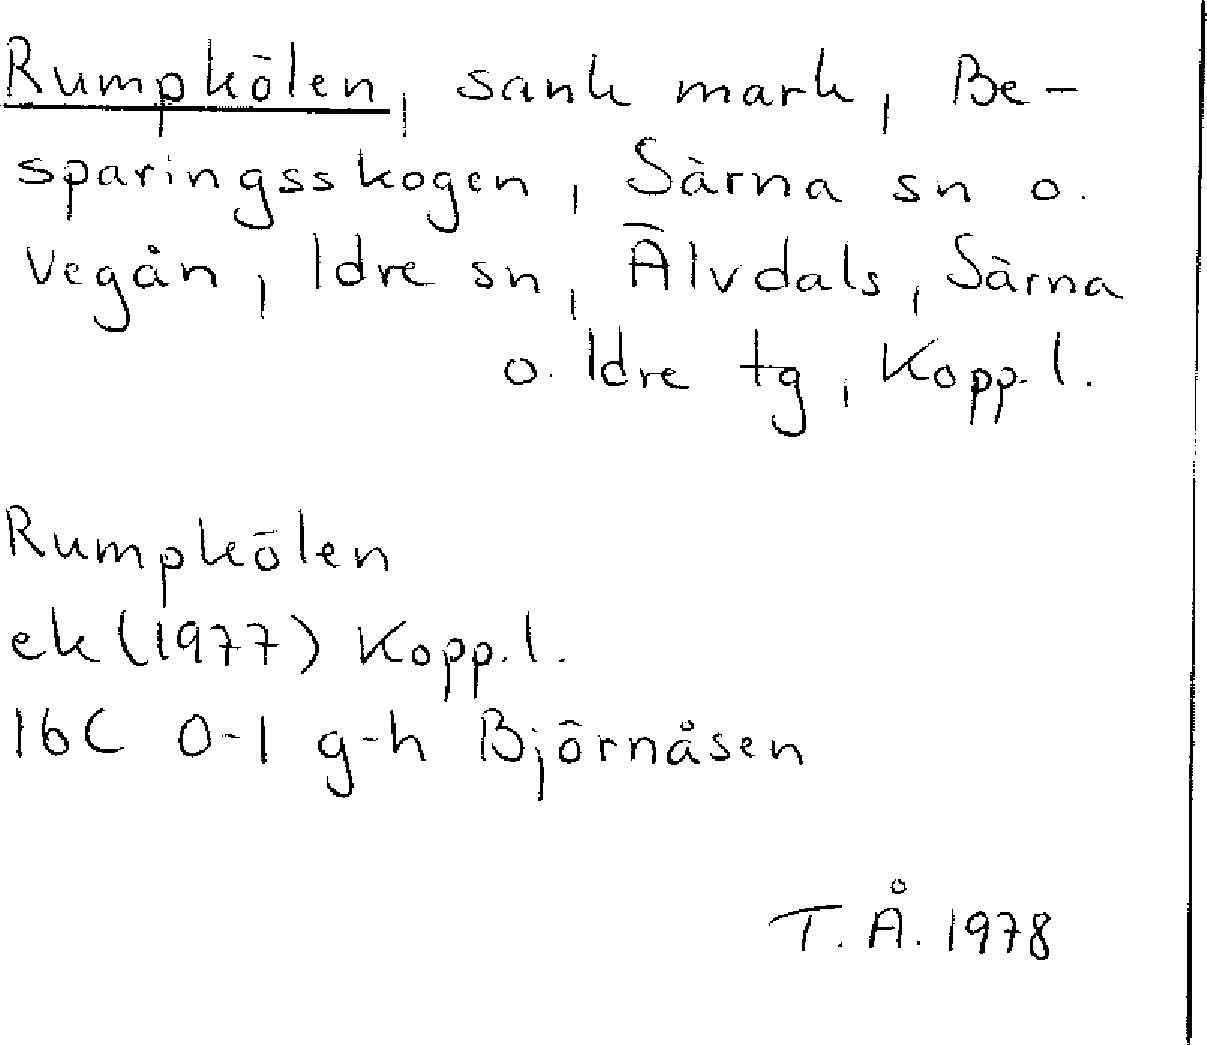 Rumpkölen, sank mark, Be-
sparingsskogen, Särna sn o.
Vegån, Idre sn, Älvdals, Särna
o. Idre tg, Kopp. l.
Rumpkölen
ek (1977) Kopp. l.
16C 0-1 g-h Björnåsen
T. Å. 1978